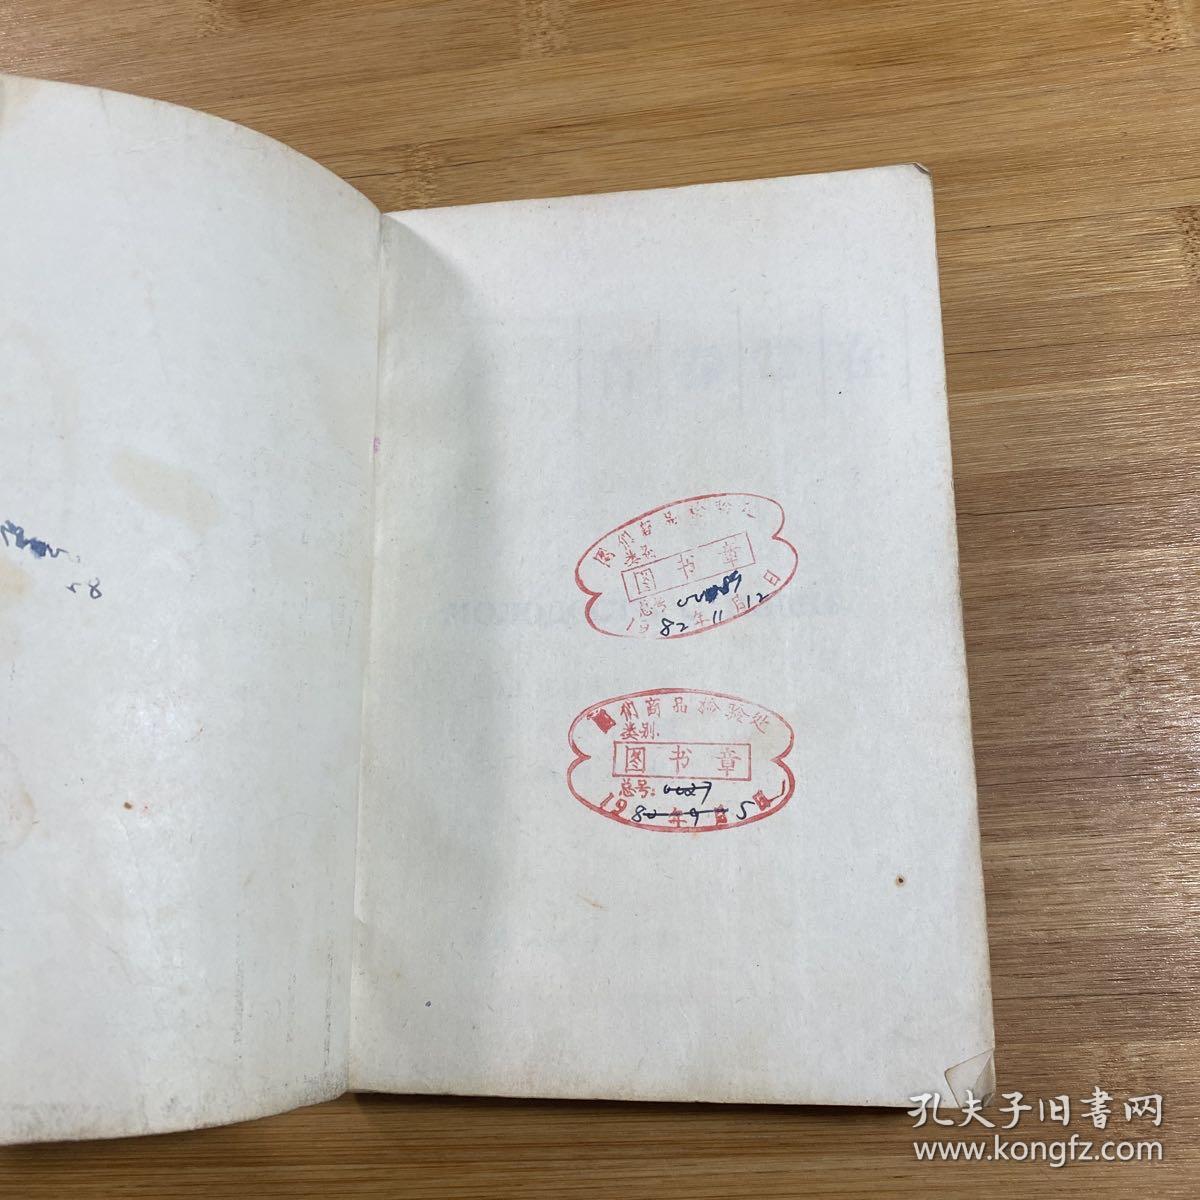 58
图们商品检验处
类别
图书章
总号
1982年11月12日
图们商品检验处
类别:
图书章
总号: 0027
1980年9月5日
孔夫子旧書网
www.kongfz.com